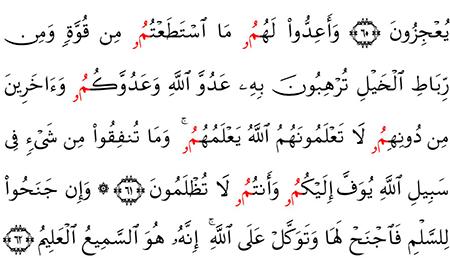 يُعْجِزُونَ ٦٠ وَأَعِدُّواْ لَهُمُۥ مَا ٱسْتَطَعْتُمُۥ مِن قُوَّةٖ وَمِن
رِّبَاطِ ٱلْخَيْلِ تُرْهِبُونَ بِهِۦ عَدُوَّ ٱللَّهِ وَعَدُوَّكُمُۥ وَءَاخَرِينَ
مِن دُونِهِمُۥ لَا تَعْلَمُونَهُمُ ٱللَّهُ يَعْلَمُهُمُۥۚ وَمَا تُنفِقُواْ مِن شَىْءٖ فِى
سَبِيلِ ٱللَّهِ يُوَفَّ إِلَيْكُمُۥ وَأَنتُمُۥ لَا تُظْلَمُونَ ٦١ ۞ وَإِن جَنَحُواْ
لِلسَّلْمِ فَٱجْنَحْ لَهَا وَتَوَكَّلْ عَلَى ٱللَّهِۚ إِنَّهُۥ هُوَ ٱلسَّمِيعُ ٱلْعَلِيمُ ٦٢